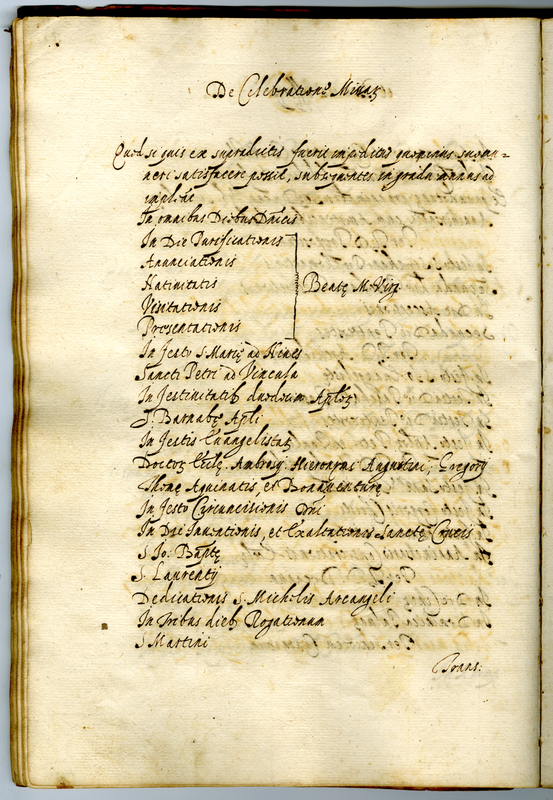 De Celebratione Missaꝝ
Quod si quis ex supradictis fuerit impeditus quominus suo mu=
neri satisfacere possit, subsequentes in gradu munus ad
impleāt
In omnibus Diebus Dnicis
In Die Purificationis
Anunciationis
Natiuitatis
Visitationis
Presentationis
Beatę M. Virg.
In festo S. Marię ad Niues
Sancti Petri ad Vincula
In festiuitatib duodecim Aplōꝝ
S. Barnabę Apli
In festis Euangelistaꝝ
Doctoꝝ Ecclę. Ambrosij Hieronymi Augustini, Gregorij
Thomę Aquinatis, et Bonauenturę
In festo Circuncisionis Dni
In Die Inuentionis, et Exaltationis Sanctę Crucis
S Io: Baptę
S. Laurentij
Dedicationis S. Michelis Arcangeli
In tribus dieb, Rogationum
S Martini
Trans: